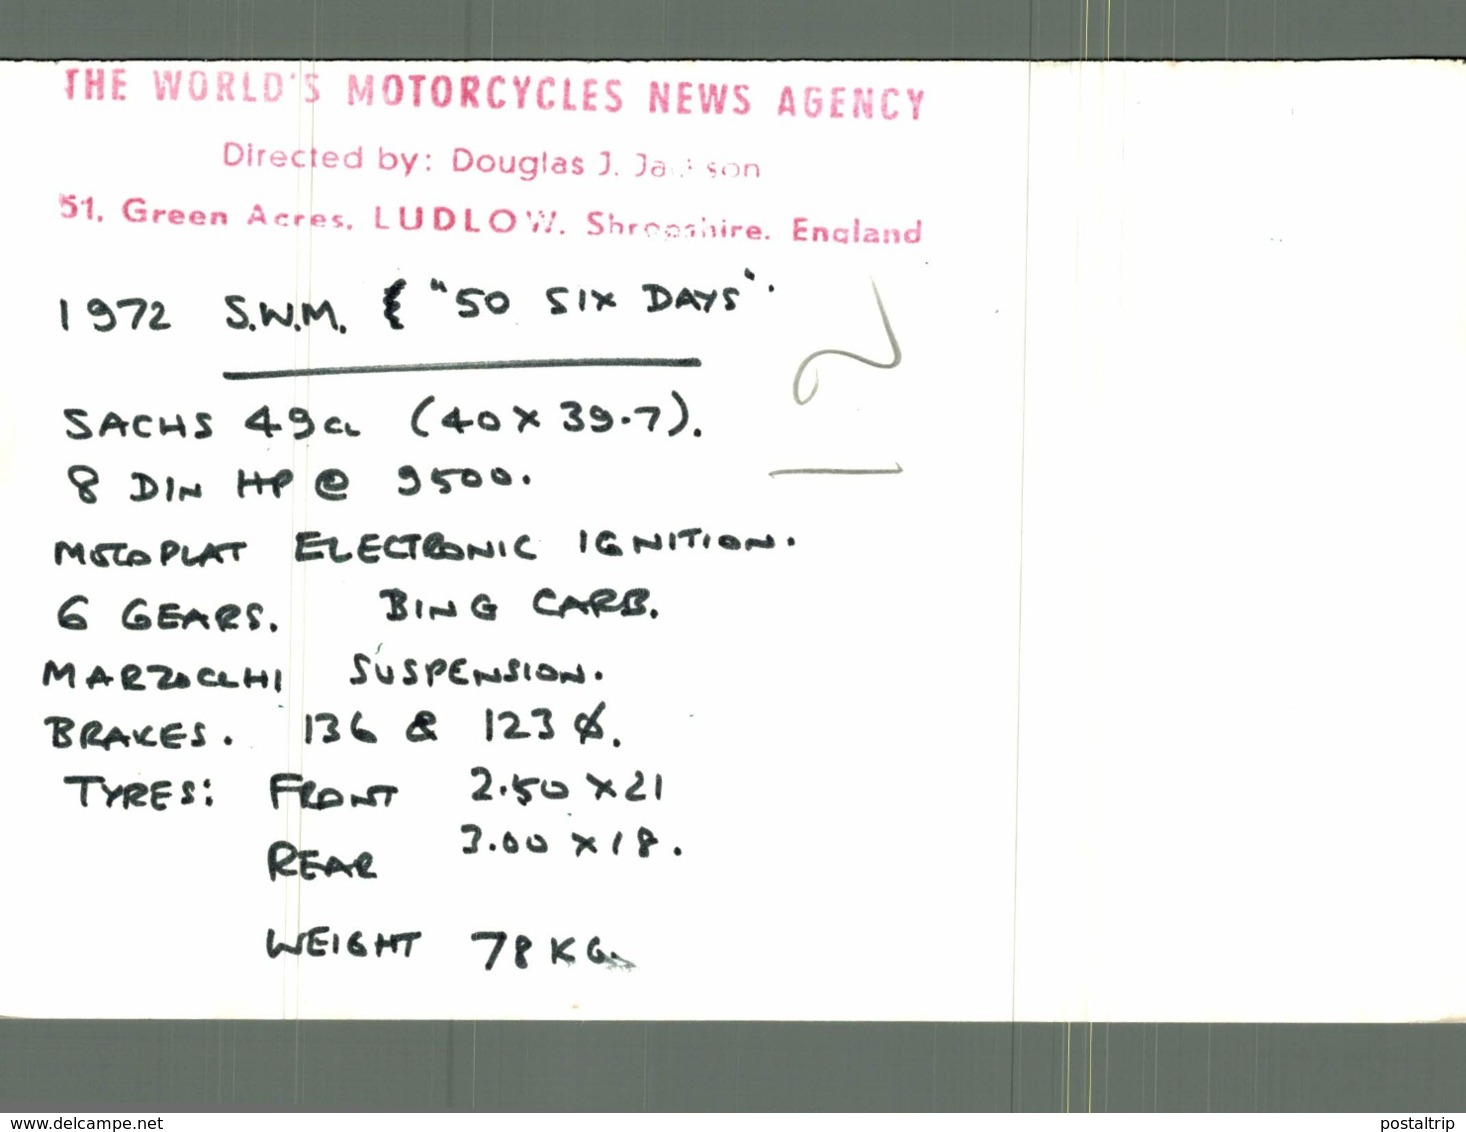 THE WORLD'S MOTORCYCLES NEWS AGENCY
Directed by: Douglas J. Jackson
51, Green Acres, LUDLOW. Shropshire. England
1972 S.W.M. "50 SIX DAYS".
SACHS 49cc (40 x 39.7).
8 DIN HP @ 9500.
MOTOPLAT ELECTRONIC IGNITION.
6 GEARS. BING CARB.
MARZOCCHI SUSPENSION.
BRAKES. 136 & 123 Ø.
TYRES: FRONT 2.50 x 21
REAR 3.00 x 18.
WEIGHT 78 KG.
www.delcampe.net
postaltrip